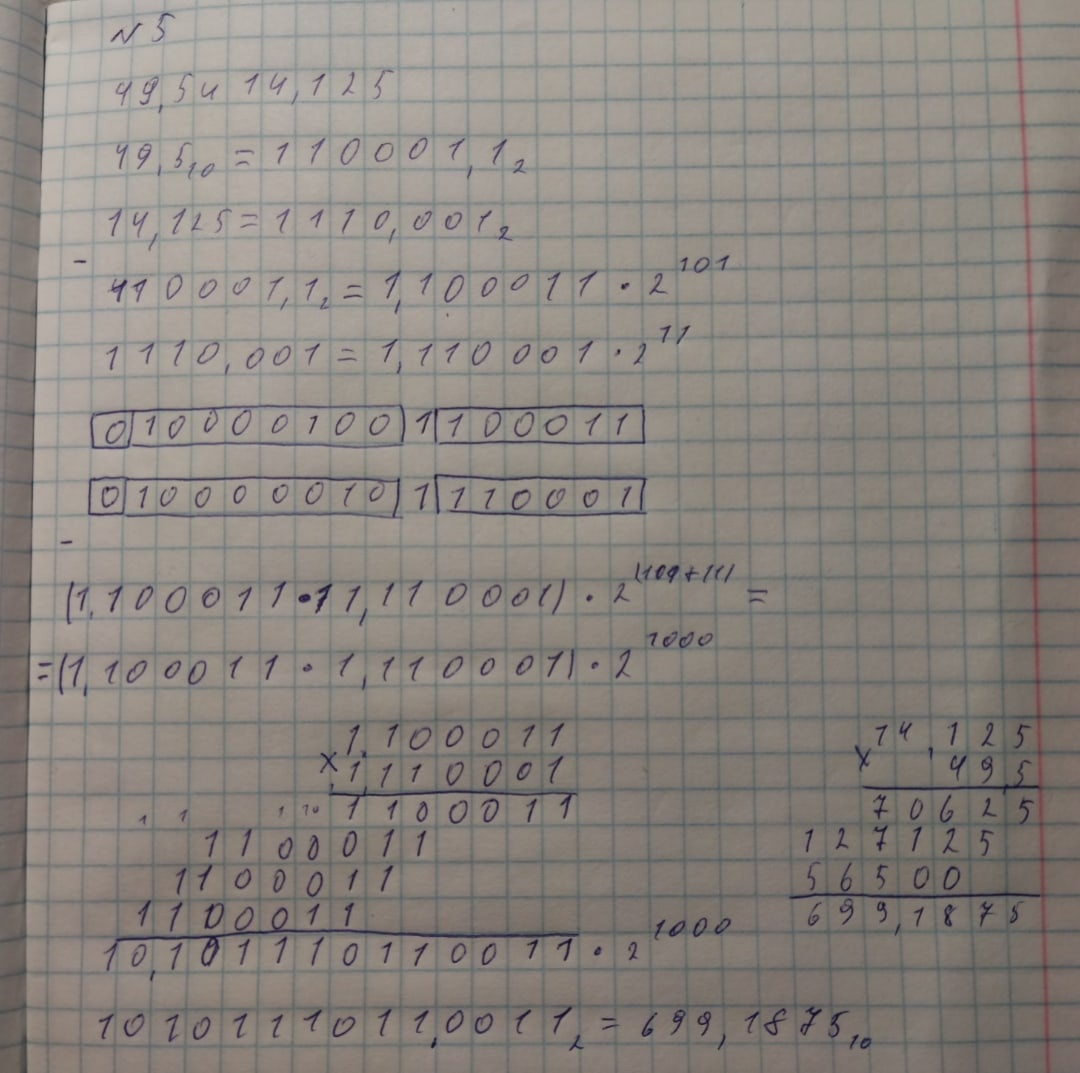 №5
49,5 и 14,125
49,5₁₀ = 110001,1₂
14,125 = 1110,001₂
-
110001,1₂ = 1,100011 · 2¹⁰¹
1110,001 = 1,110001 · 2¹¹
0 10000100 1 100011
0 10000010 1 110001
-
(1,100011 · 1,110001) · 2⁽¹⁰¹⁺¹¹⁾ =
= (1,100011 · 1,110001) · 2¹⁰⁰⁰
1,100011
× 1,110001
1 1 1 10
1100011
1100011
1100011
1100011
10,1011101100 11 · 2¹⁰⁰⁰
14,125
× 49,5
70625
127125
56500
699,1875
1010111011,0011₂ = 699,1875₁₀